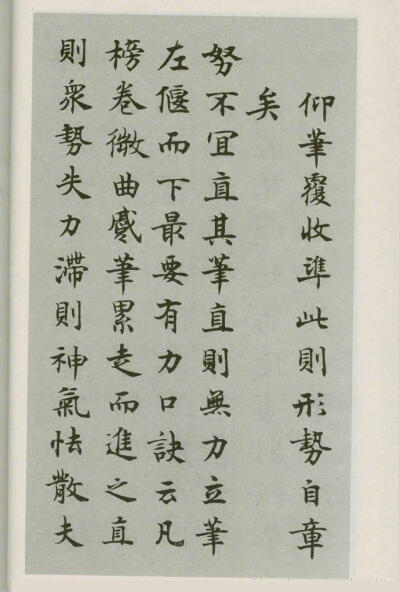 仰筆覆收準此則形勢自章
矣
努不宜直其筆直則無力立筆
左偃而下最要有力口訣云凡
榜卷微曲蹙筆累走而進之直
則眾勢失力滯則神氣怯散夫